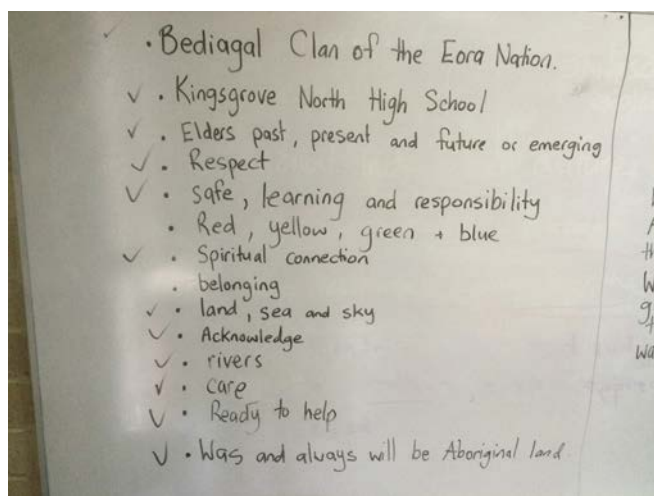 ✓ • Bediagal Clan of the Eora Nation.
✓ • Kingsgrove North High School
✓ • Elders past, present and future or emerging
✓ • Respect
✓ • safe, learning and responsibility
• Red, yellow, green + blue
✓ • Spiritual connection
• belonging
✓ • land, sea and sky
✓ • Acknowledge
✓ • rivers
✓ • care
✓ • Ready to help
✓ • Was and always will be Aboriginal land.